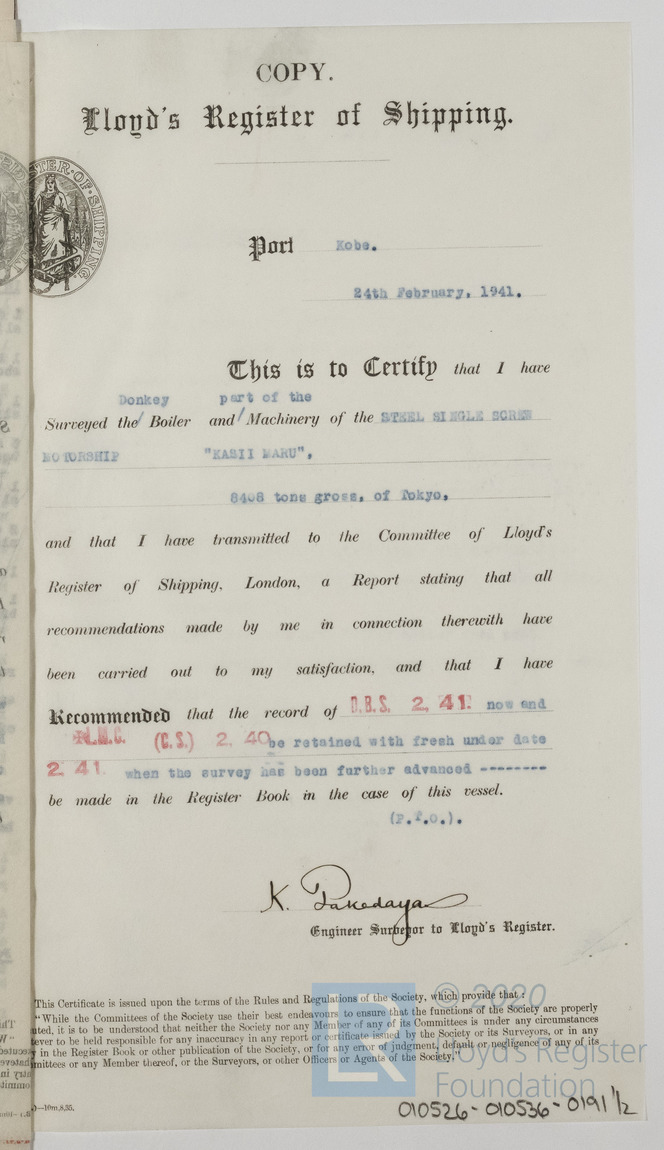 COPY.
Lloyd's Register of Shipping.
STER·OF·SHIPPING
Port Kobe.
24th February, 1941.
This is to Certify that I have
Donkey part of the
Surveyed the/ Boiler and/ Machinery of the STEEL SINGLE SCREW
MOTORSHIP "KASII MARU",
8408 tons gross, of Tokyo,
and that I have transmitted to the Committee of Lloyd's
Register of Shipping, London, a Report stating that all
recommendations made by me in connection therewith have
been carried out to my satisfaction, and that I have
Recommended that the record of D.B.S. 2, 41. now and
R.M.C. (C.S.) 2. 40 be retained with fresh under date
2. 41 when the survey has been further advanced --------
be made in the Register Book in the case of this vessel.
(P.T.O.).
K. Takedaya
Engineer Surveyor to Lloyd's Register.
This Certificate is issued upon the terms of the Rules and Regulations of the Society, which provide that :
"While the Committees of the Society use their best endeavours to ensure that the functions of the Society are properly
uted, it is to be understood that neither the Society nor any Member of any of its Committees is under any circumstances
ever to be held responsible for any inaccuracy in any report or certificate issued by the Society or its Surveyors, or in any
y in the Register Book or other publication of the Society, or for any error of judgment, default or negligence of any of its
mittees or any Member thereof, or the Surveyors, or other Officers or Agents of the Society."
—10m,8,35.
© 2020
Lloyd's Register
Foundation
010526-010536-0191 1/2